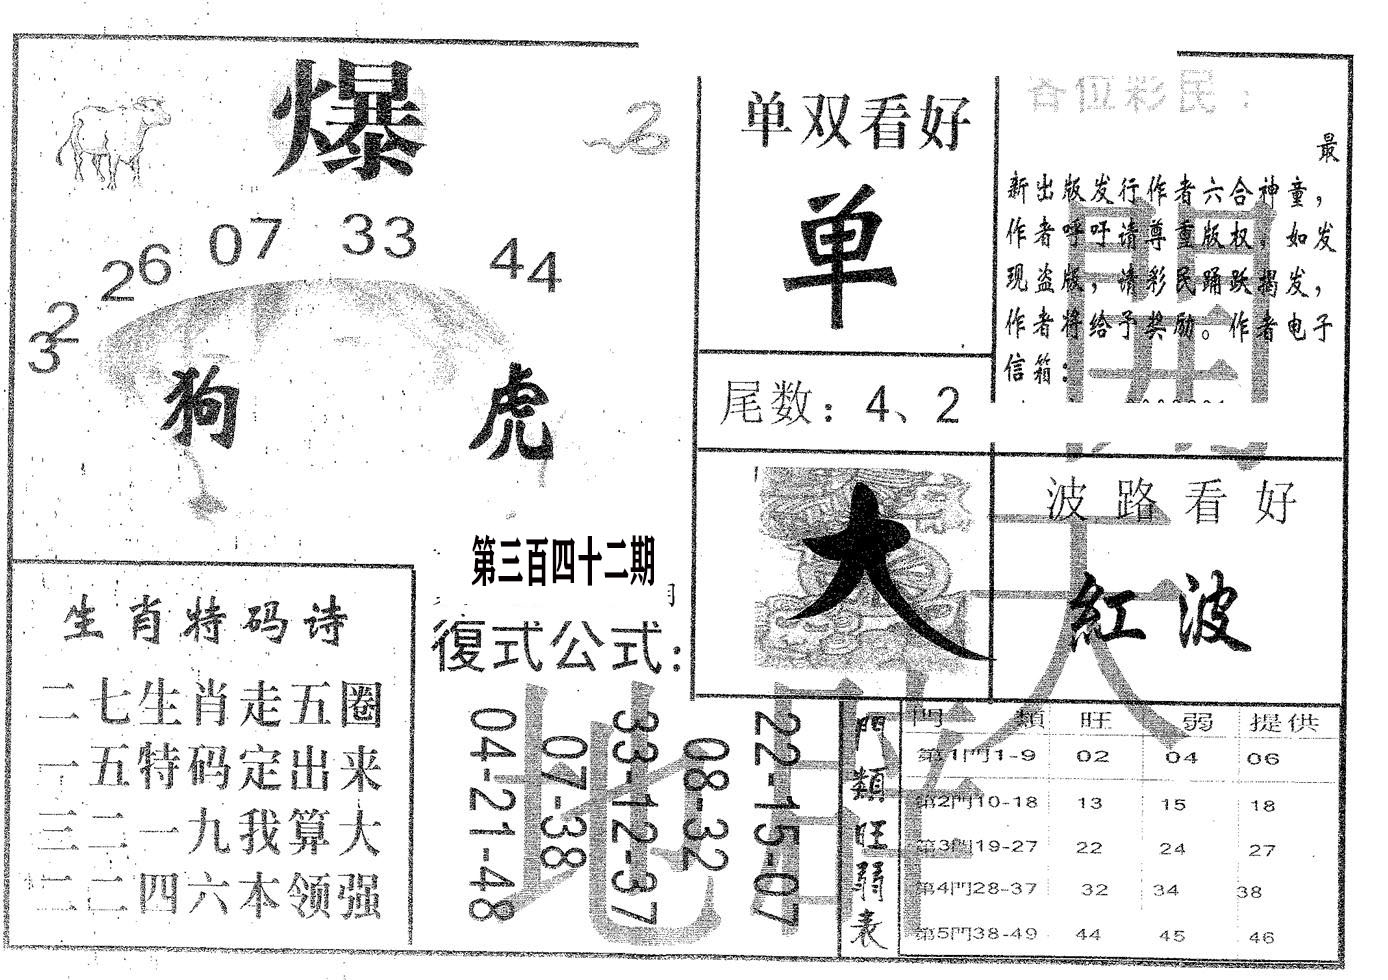 爆
2
32
26
07
33
44
狗
虎
第三百四十二期
生肖特码诗
二七生肖走五圈
一五特码定出来
三二一九我算大
二二四六本领强
復式公式:
04-21-48
07-38
33-12-37
08-32
22-15-07
单双看好
单
尾数：4、2
大
各位彩民：
最
新出版发行作者六合神童，
作者呼吁请尊重版权，如发
现盗版，请彩民踊跃揭发，
作者将给予奖励。作者电子
信箱：
波路看好
紅波
門類旺弱表
門類 旺 弱 提供
第1門1-9 02 04 06
第2門10-18 13 15 18
第3門19-27 22 24 27
第4門28-37 32 34 38
第5門38-49 44 45 46